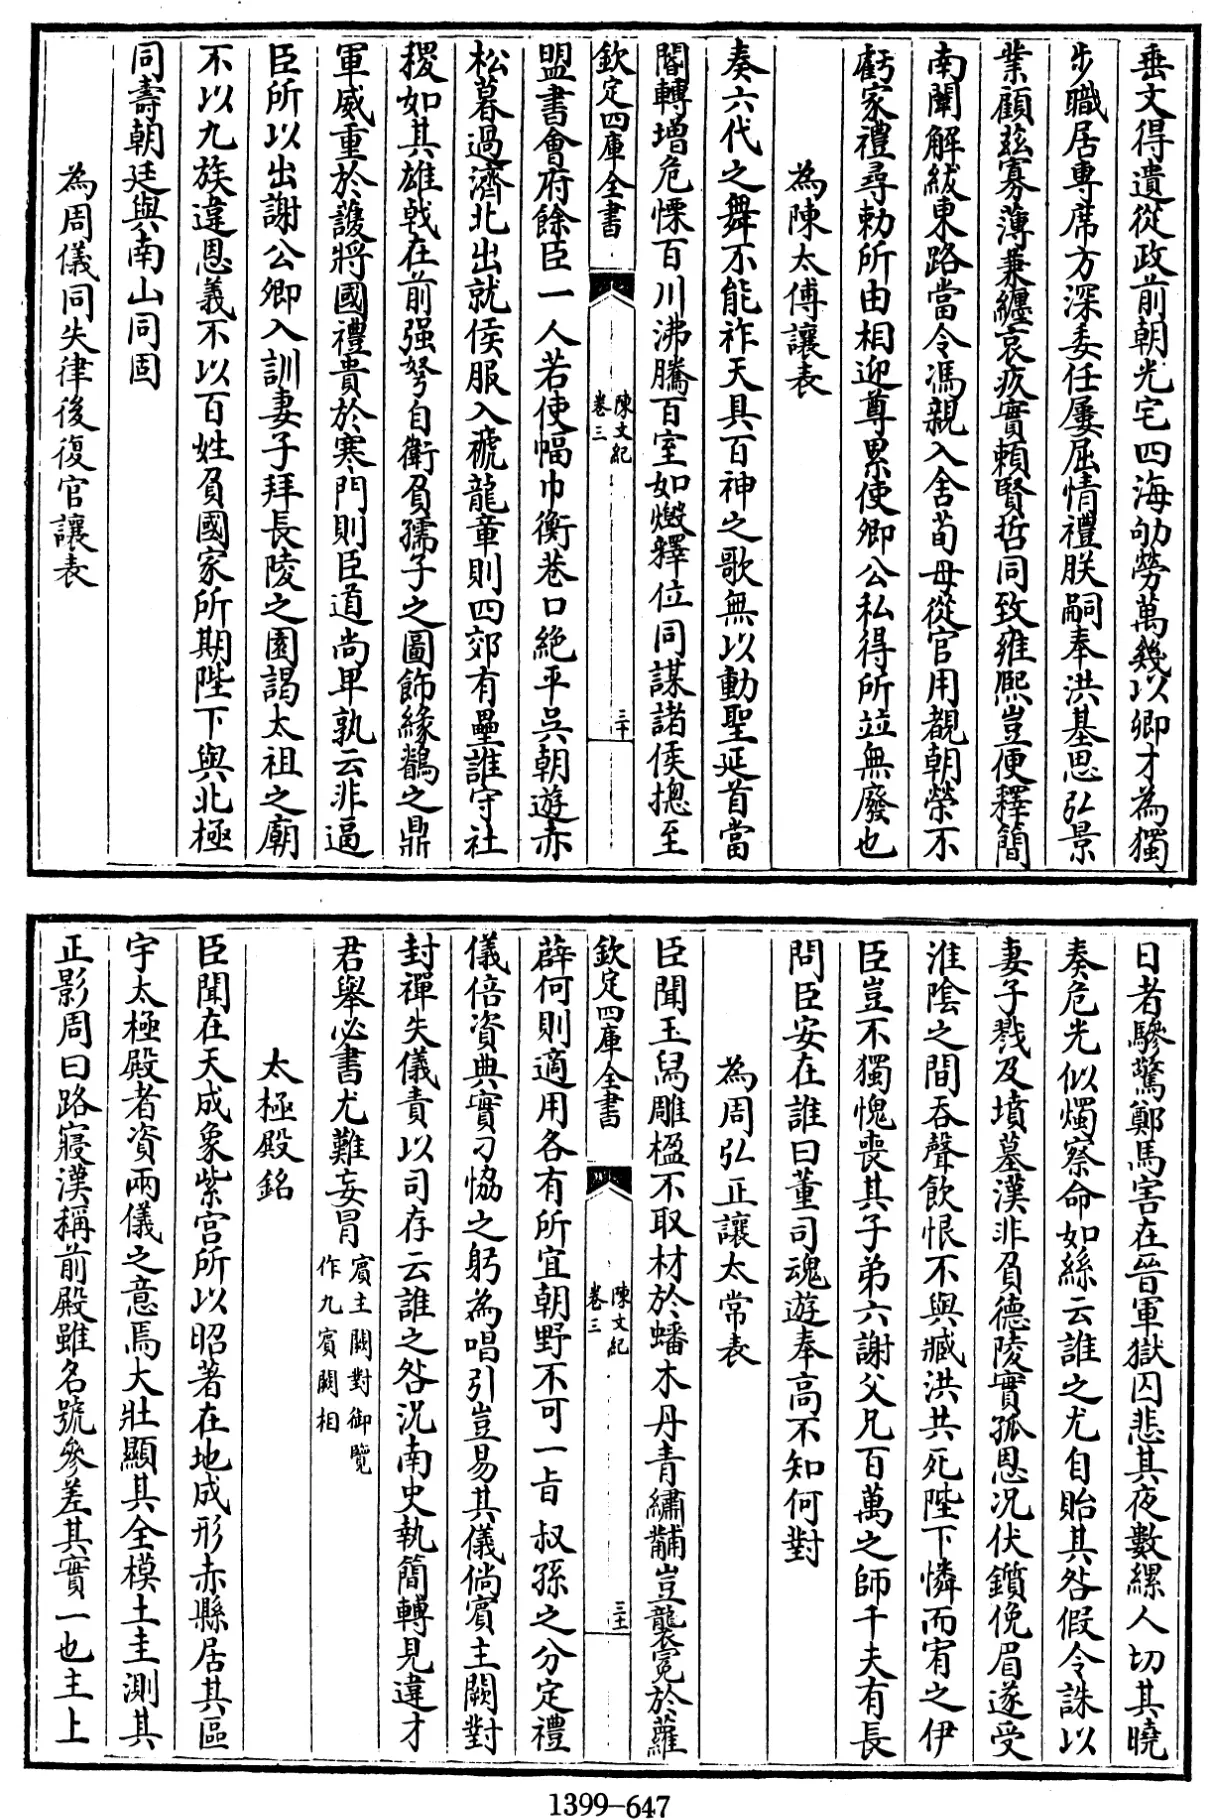 垂文得遺從政前朝光宅四海劬勞萬幾以卿才為獨
步職居專席方深委任屢屈情禮朕嗣奉洪基思弘景
業顧茲寡薄兼纏哀疚實賴賢哲同致雍熙豈便釋簡
南闈解紱東路當令馮親入舍荀母從官用覩朝榮不
虧家禮尋勅所由相迎尊累使卿公私得所竝無廢也
為陳太傅讓表
奏六代之舞不能祚天具百神之歌無以動聖延首當
閽轉增危慄百川沸騰百室如燬釋位同謀諸侯摠至
欽定四庫全書
陳文紀
卷三
三十
盟書會府餘臣一人若使幅巾衡巷口絶平吳朝遊赤
松暮過濟北出就侯服入褫龍章則四郊有壘誰守社
稷如其雄戟在前强弩自衛負孺子之圖飾緣鵠之鼎
軍威重於護將國禮貴於寒門則臣道尚卑孰云非逼
臣所以出謝公卿入訓妻子拜長陵之園謁太祖之廟
不以九族違恩義不以百姓負國家所期陛下與北極
同壽朝廷與南山同固
為周儀同失律後復官讓表
日者驂驚鄭馬害在晉軍獄囚悲其夜數縲人切其曉
奏危光似燭察命如絲云誰之尤自貽其咎假令誅以
妻子戮及墳墓漢非負德陵實孤恩況伏鑕俛眉遂受
淮隂之間吞聲飲恨不與臧洪共死陛下憐而宥之伊
臣豈不獨愧喪其子弟六謝父兄百萬之師千夫有長
問臣安在誰曰董司魂遊奉高不知何對
為周弘正讓太常表
臣聞玉舄雕楹不取材於蟠木丹青繡黼豈襲冕於蘿
欽定四庫全書
陳文紀
卷三
三十一
薜何則適用各有所宜朝野不可一㫖叔孫之分定禮
儀倍資典實刁協之躬為唱引豈易其儀倘賓主闕對
封禪失儀責以司存云誰之咎況南史執簡轉見違才
君舉必書尤難妄冒賓主闕對御覽
作九賓闕相
太極殿銘
臣聞在天成象紫宫所以昭著在地成形赤縣居其區
宇太極殿者資兩儀之意焉大壯顯其全模土圭測其
正影周曰路寢漢稱前殿雖名號參差其實一也主上
1399-647